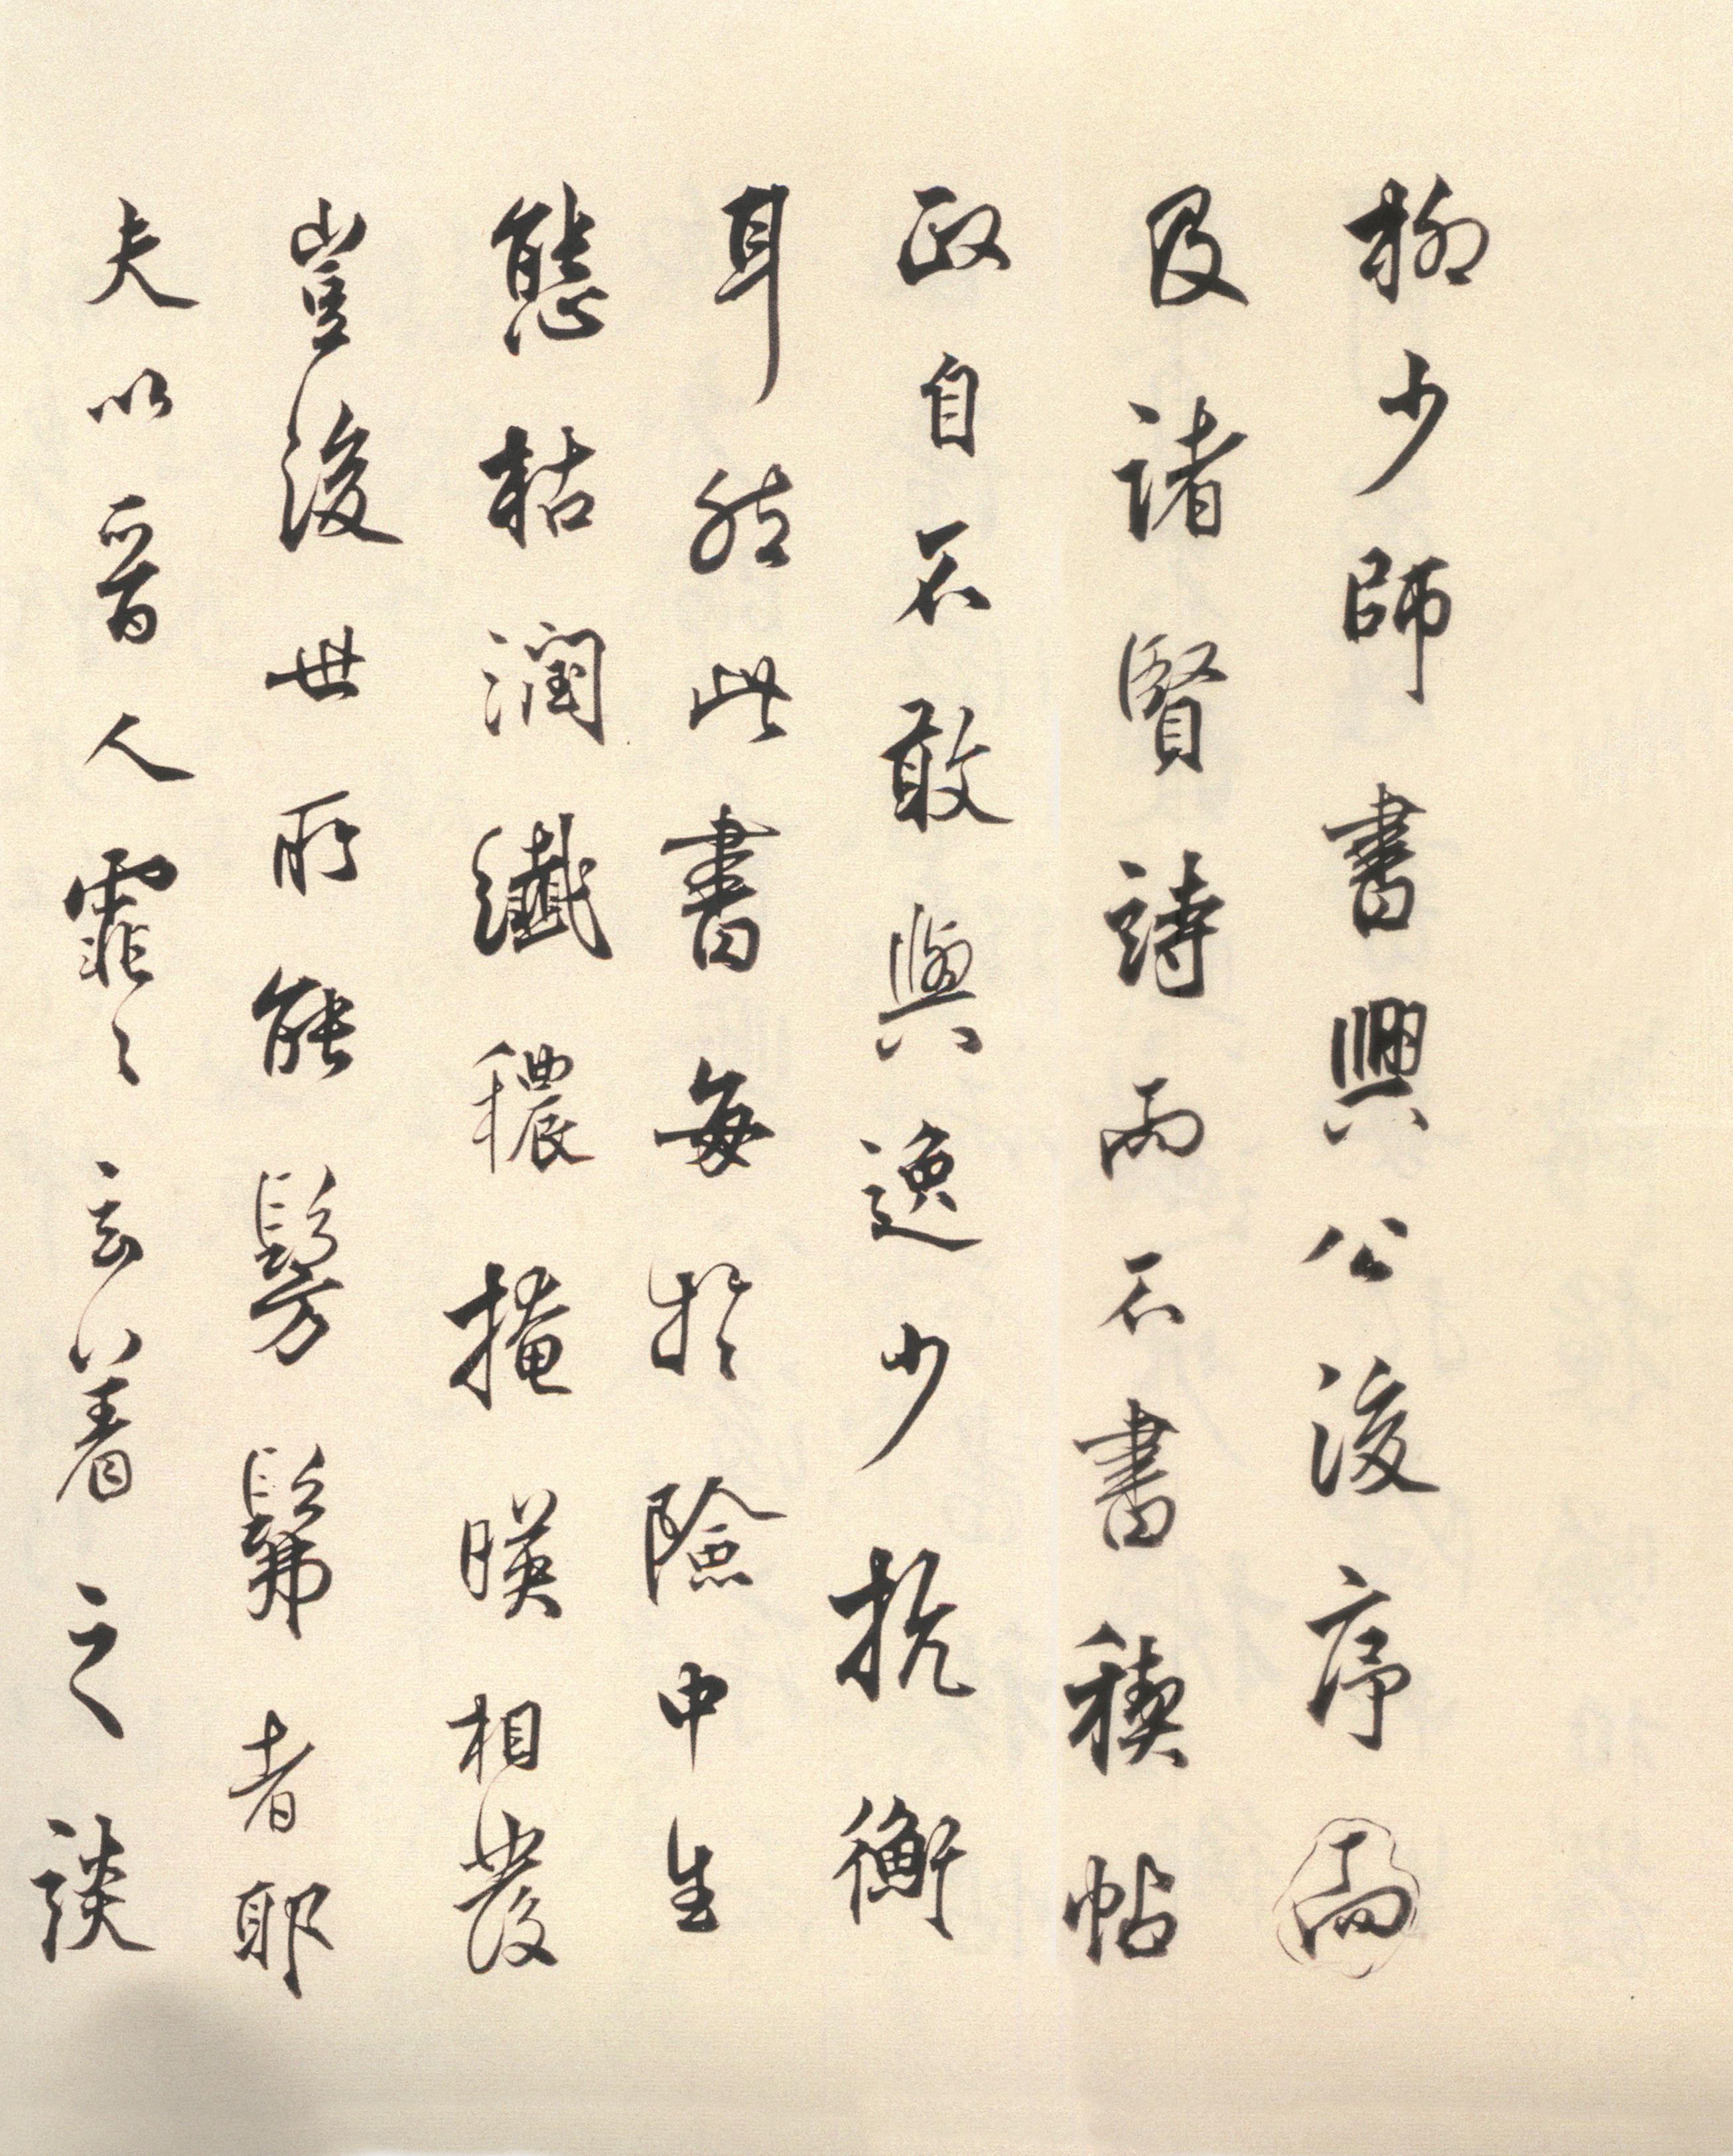 柳少師書興公後序而
及諸賢詩而不書稧帖
政自不敢與逸少抗衡
耳然此書每於險中生
態枯潤纖穠掩暎相發
豈後世所能髣髴者耶
夫以晉人霏〻玄著之談